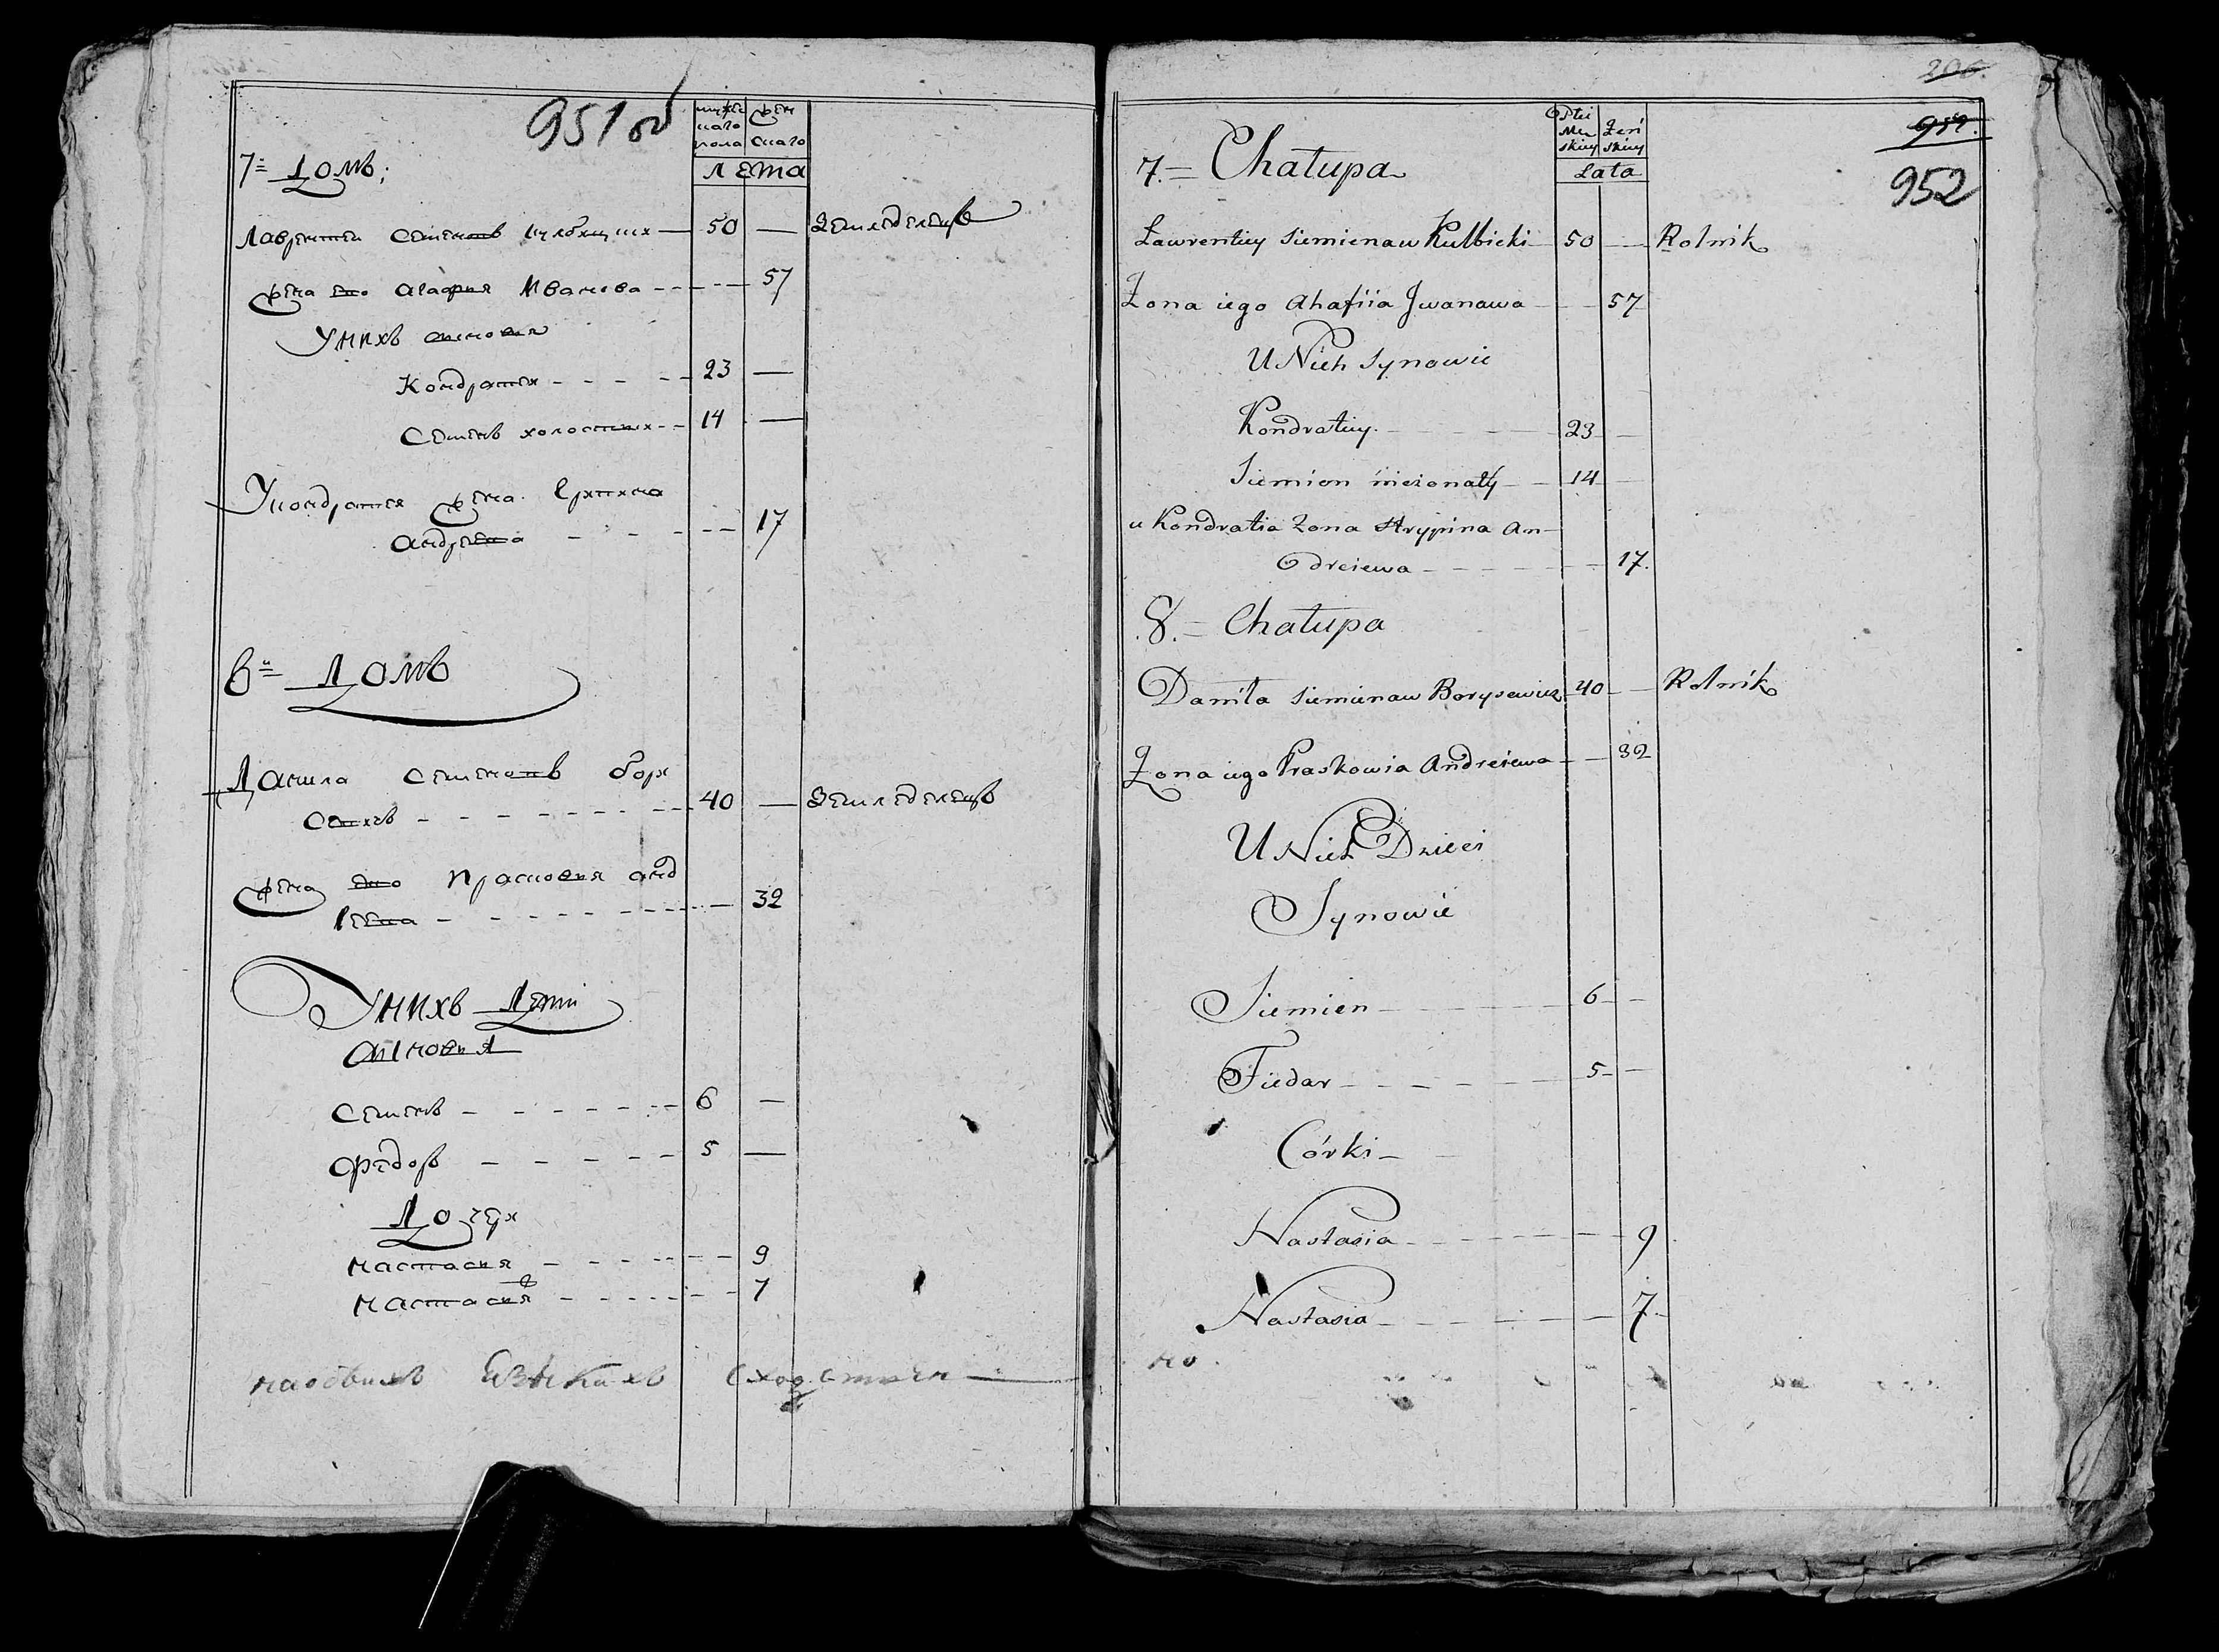 951 об
мужес
наго
пола
жен
скаго
7й Домъ;
лѣта
Лаврентей Семеновъ Кулбицки — 50 — Земледелецъ
жена его агафия Иванова - - - - 57
У нихъ сыновья
Кондратей - - - - 23 —
Семенъ холостых - - 14 —
У кондратея жена
андреева - - - - - 17
8й Домъ
Данила Семеновъ бори
севичъ - - - - - - - 40 — Земледелецъ
жена его прасковия анд
реева - - - - - - - - 32
У нихъ Дети
сыновья
Семенъ - - - - - - - 6 —
Федоръ - - - - - 5 —
Дочери
настасия - - - - - - - 9
настасия - - - - - - - 7
на обоихъ языкахъ сходственны
206.
952
Płci
Mę
skiey
Żeń
skiey
7. = Chałupa
Lata
952
Ławrentiy Siemienaw Kulbicki 50 — Rolnik
Żona iego Ahafiia Jwanawa — — 57
U Nich Synowie
Kondratiy. — — — 23 —
Siemion nieżonaty — — 14 —
u Kondratia Żona Hrypina An-
dreiewa — — — — — 17.
8. = Chałupa
Daniła Siemienaw Borysewicz 40 — Rolnik
Żona iego Praskowia Andreiewa — — 32
U Nich Dzieci
Synowie
Siemien — — — — 6 —
Fiedar — — — — 5 —
Córki —
Nastasia — — — — — 9
Nastasia — — — — — 7
но